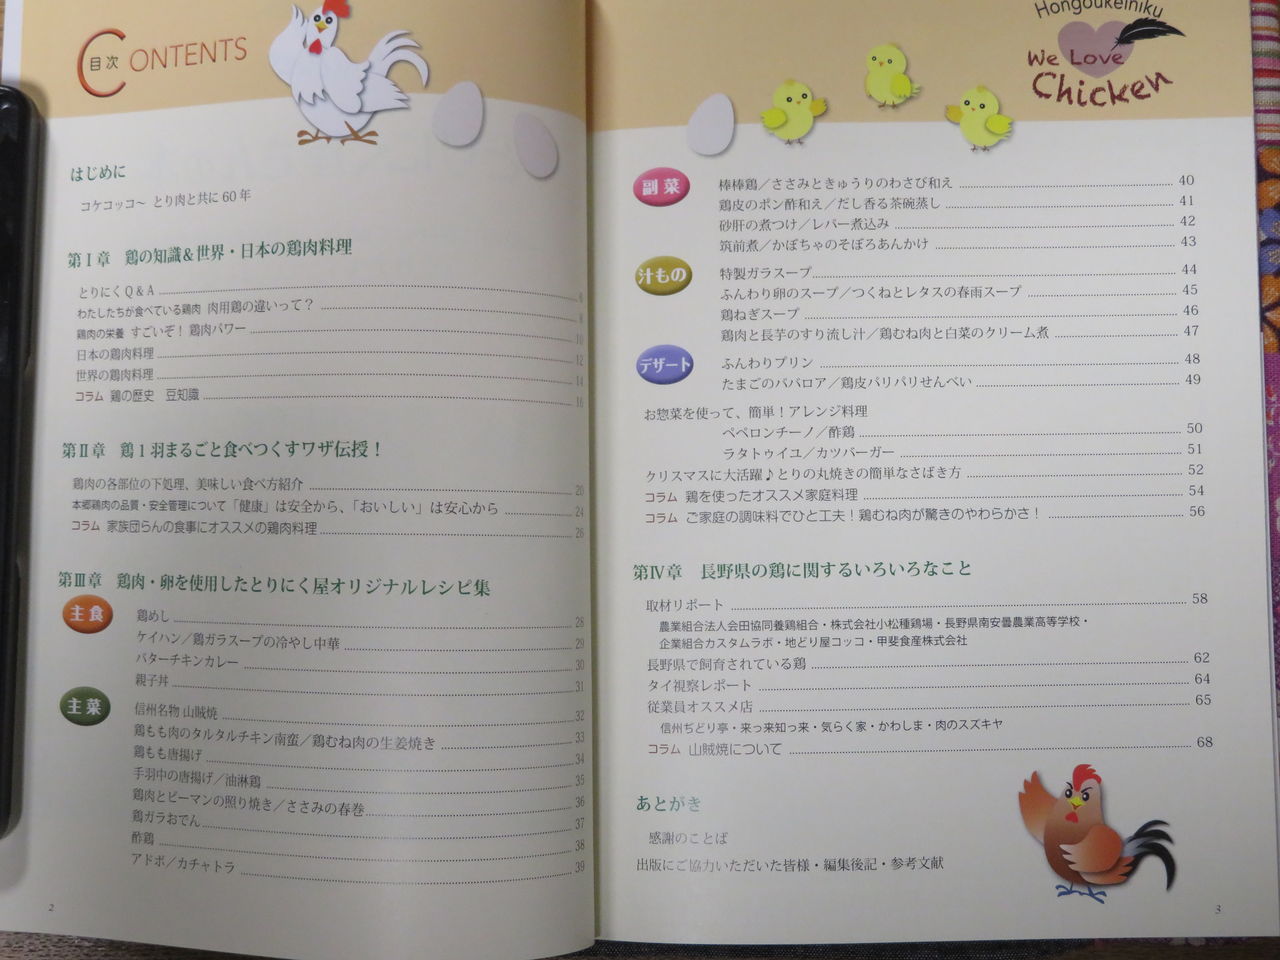 目次
CONTENTS
はじめに
コケコッコ〜 とり肉と共に60年
第Ⅰ章 鶏の知識＆世界・日本の鶏肉料理
とりにくQ＆A 6
わたしたちが食べている鶏肉 肉用鶏の違いって？ 8
鶏肉の栄養 すごいぞ！鶏肉パワー 10
日本の鶏肉料理 12
世界の鶏肉料理 14
コラム 鶏の歴史 豆知識 16
第Ⅱ章 鶏1羽まるごと食べつくすワザ伝授！
鶏肉の各部位の下処理、美味しい食べ方紹介 20
本郷鶏肉の品質・安全管理について「健康」は安全から、「おいしい」は安心から 24
コラム 家族団らんの食事にオススメの鶏肉料理 26
第Ⅲ章 鶏肉・卵を使用したとりにく屋オリジナルレシピ集
主食
鶏めし 28
ケイハン／鶏ガラスープの冷やし中華 29
バターチキンカレー 30
親子丼 31
主菜
信州名物 山賊焼 32
鶏もも肉のタルタルチキン南蛮／鶏むね肉の生姜焼き 33
鶏もも唐揚げ 34
手羽中の唐揚げ／油淋鶏 35
鶏肉とピーマンの照り焼き／ささみの春巻 36
鶏ガラおでん 37
酢鶏 38
アドボ／カチャトラ 39
2
Hongoukeiniku
We Love
Chicken
副菜
棒棒鶏／ささみときゅうりのわさび和え 40
鶏皮のポン酢和え／だし香る茶碗蒸し 41
砂肝の煮つけ／レバー煮込み 42
筑前煮／かぼちゃのそぼろあんかけ 43
汁もの
特製ガラスープ 44
ふんわり卵のスープ／つくねとレタスの春雨スープ 45
鶏ねぎスープ 46
鶏肉と長芋のすり流し汁／鶏むね肉と白菜のクリーム煮 47
デザート
ふんわりプリン 48
たまごのババロア／鶏皮パリパリせんべい 49
お惣菜を使って、簡単！アレンジ料理
ペペロンチーノ／酢鶏 50
ラタトゥイユ／カツバーガー 51
クリスマスに大活躍♪とりの丸焼きの簡単なさばき方 52
コラム 鶏を使ったオススメ家庭料理 54
コラム ご家庭の調味料でひと工夫！鶏むね肉が驚きのやわらかさ！ 56
第Ⅳ章 長野県の鶏に関するいろいろなこと
取材リポート 58
農業組合法人会田協同養鶏組合・株式会社小松種鶏場・長野県南安曇農業高等学校・
企業組合カスタムラボ・地どり屋コッコ・甲斐食産株式会社
長野県で飼育されている鶏 62
タイ視察レポート 64
従業員オススメ店 65
信州ぢどり亭・来っ来知っ来・気らく家・かわしま・肉のスズキヤ
コラム 山賊焼について 68
あとがき
感謝のことば
出版にご協力いただいた皆様・編集後記・参考文献
3